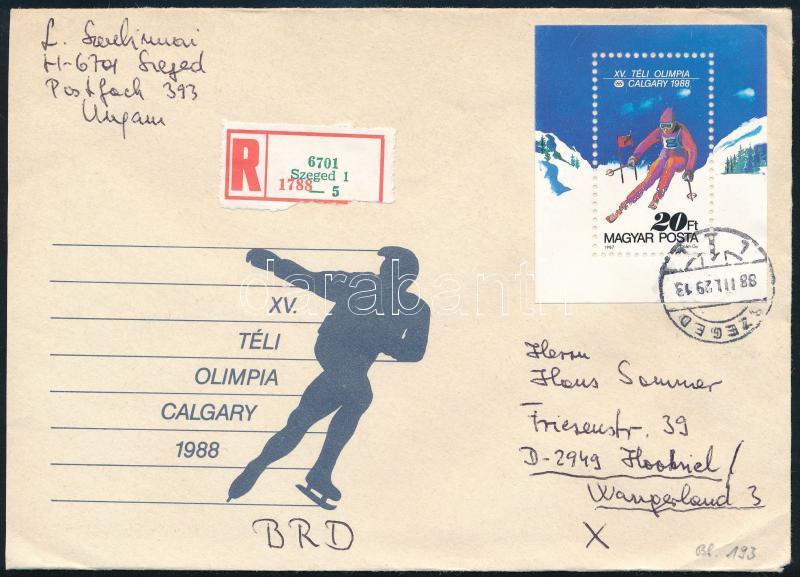 H-6701 Szeged
Postfach 393
Ungarn
R
6701
Szeged 1
1788 — 5
XV. TÉLI OLIMPIA
CALGARY 1988
20 Ft
MAGYAR POSTA
1987
88 III. 29 13
SZEGED
XV.
TÉLI
OLIMPIA
CALGARY
1988
darabanth
Herrn
Hans Sommer
Friesenstr. 39
D-2949 Hooksiel/
Wangerland 3
BRD
X
Bl. 193